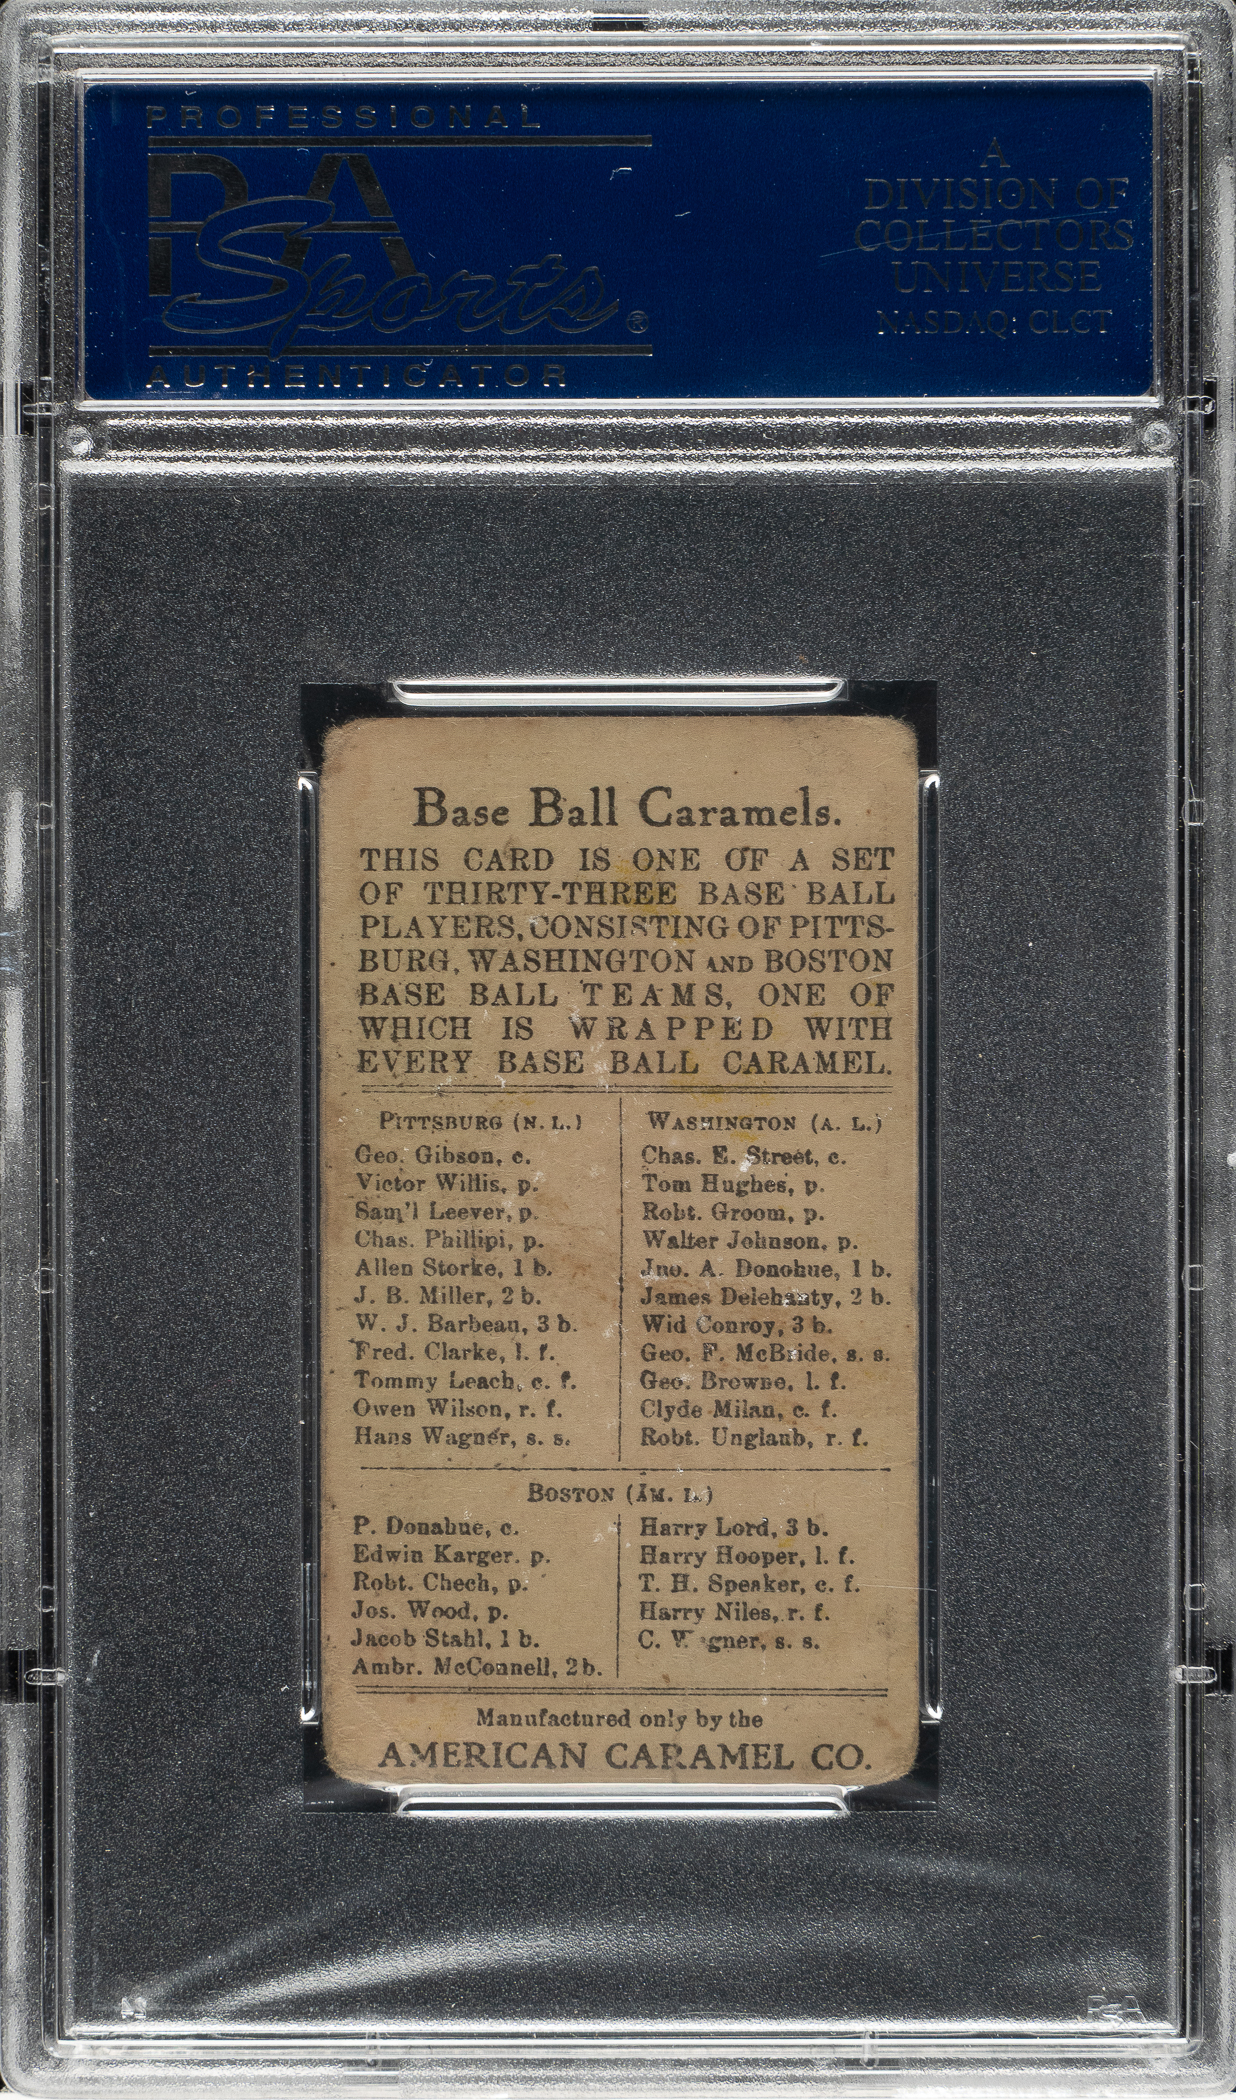 PROFESSIONAL
PSA
Sports®
AUTHENTICATOR
A
DIVISION OF
COLLECTORS
UNIVERSE
NASDAQ: CLCT
Base Ball Caramels.
THIS CARD IS ONE OF A SET
OF THIRTY-THREE BASE BALL
PLAYERS, CONSISTING OF PITTS-
BURG, WASHINGTON AND BOSTON
BASE BALL TEAMS, ONE OF
WHICH IS WRAPPED WITH
EVERY BASE BALL CARAMEL.
PITTSBURG (N. L.)
Geo. Gibson, c.
Victor Willis, p.
Sam'l Leever, p.
Chas. Phillipi, p.
Allen Storke, 1 b.
J. B. Miller, 2 b.
W. J. Barbeau, 3 b.
Fred. Clarke, l. f.
Tommy Leach, c. f.
Owen Wilson, r. f.
Hans Wagner, s. s.
WASHINGTON (A. L.)
Chas. E. Street, c.
Tom Hughes, p.
Robt. Groom, p.
Walter Johnson, p.
Jno. A. Donohue, 1 b.
James Delehanty, 2 b.
Wid Conroy, 3 b.
Geo. F. McBride, s. s.
Geo. Browne, l. f.
Clyde Milan, c. f.
Robt. Unglaub, r. f.
BOSTON (AM. L.)
P. Donahue, c.
Edwin Karger, p.
Robt. Chech, p.
Jos. Wood, p.
Jacob Stahl, 1 b.
Ambr. McConnell, 2 b.
Harry Lord, 3 b.
Harry Hooper, l. f.
T. H. Speaker, c. f.
Harry Niles, r. f.
C. Wagner, s. s.
Manufactured only by the
AMERICAN CARAMEL CO.
PSA